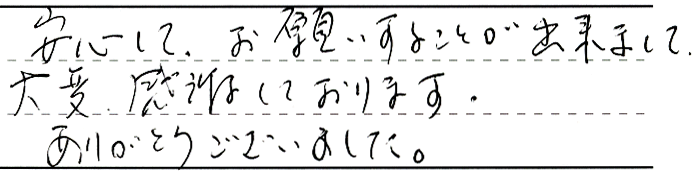 安心して、お願いすることが出来まして、
大変、感謝しております。
ありがとうございました。